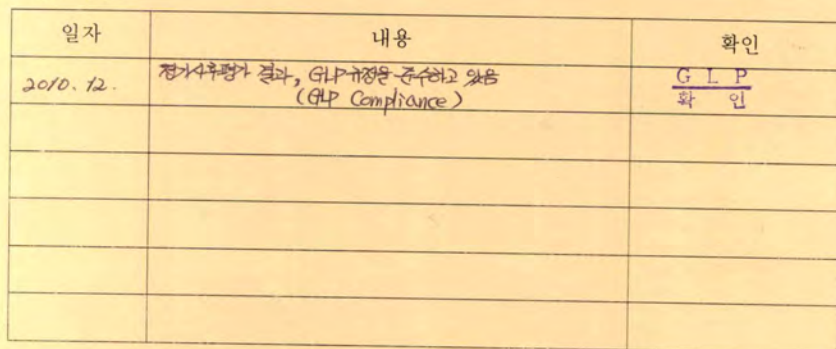 일자 내용 확인
2010. 12. 정기사후평가 결과, GLP규정을 준수하고 있음 G L P
(GLP Compliance) 확 인